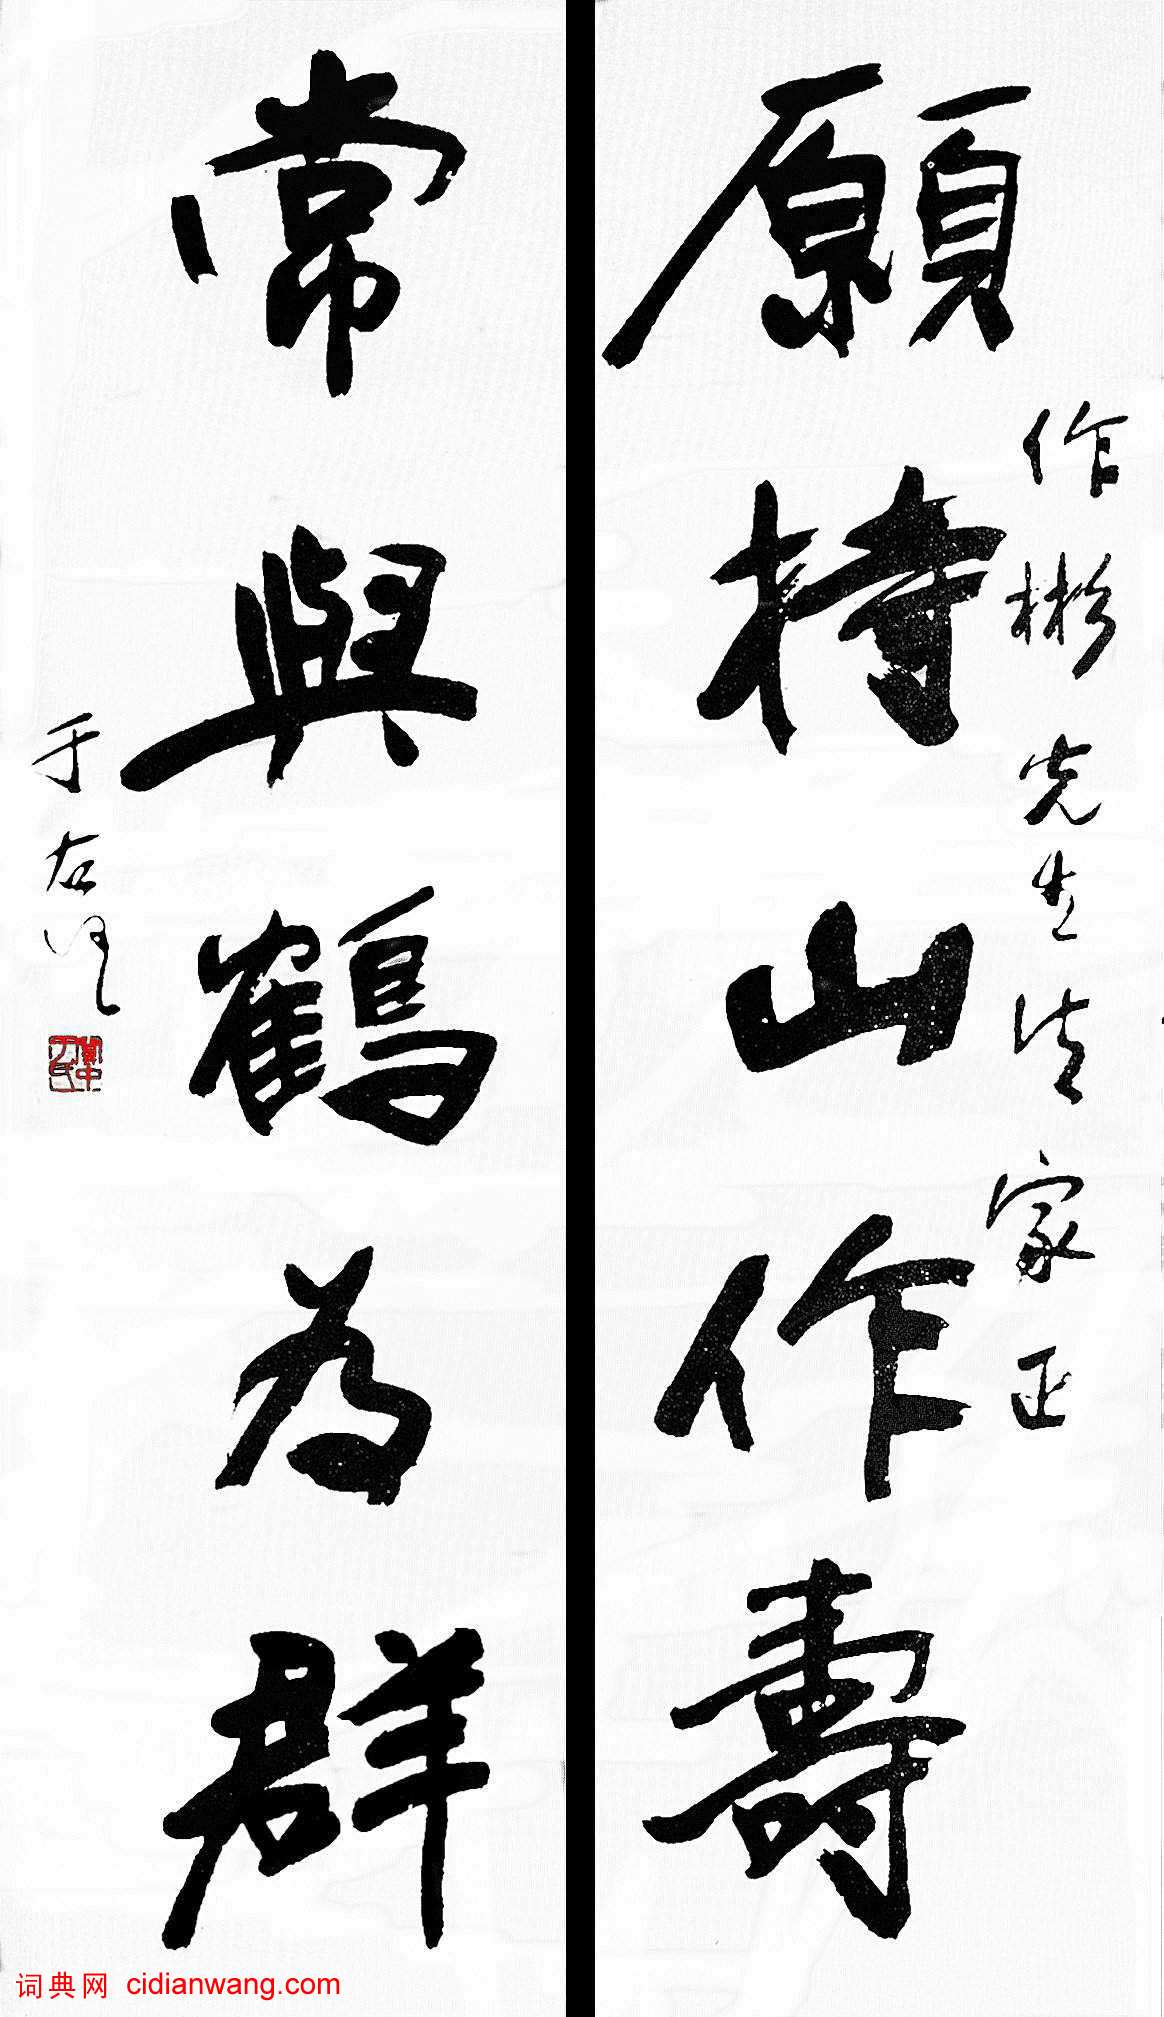 願持山作壽
作彬先生法家正
常與鶴為群
于右任
詞典网 cidianwang.com